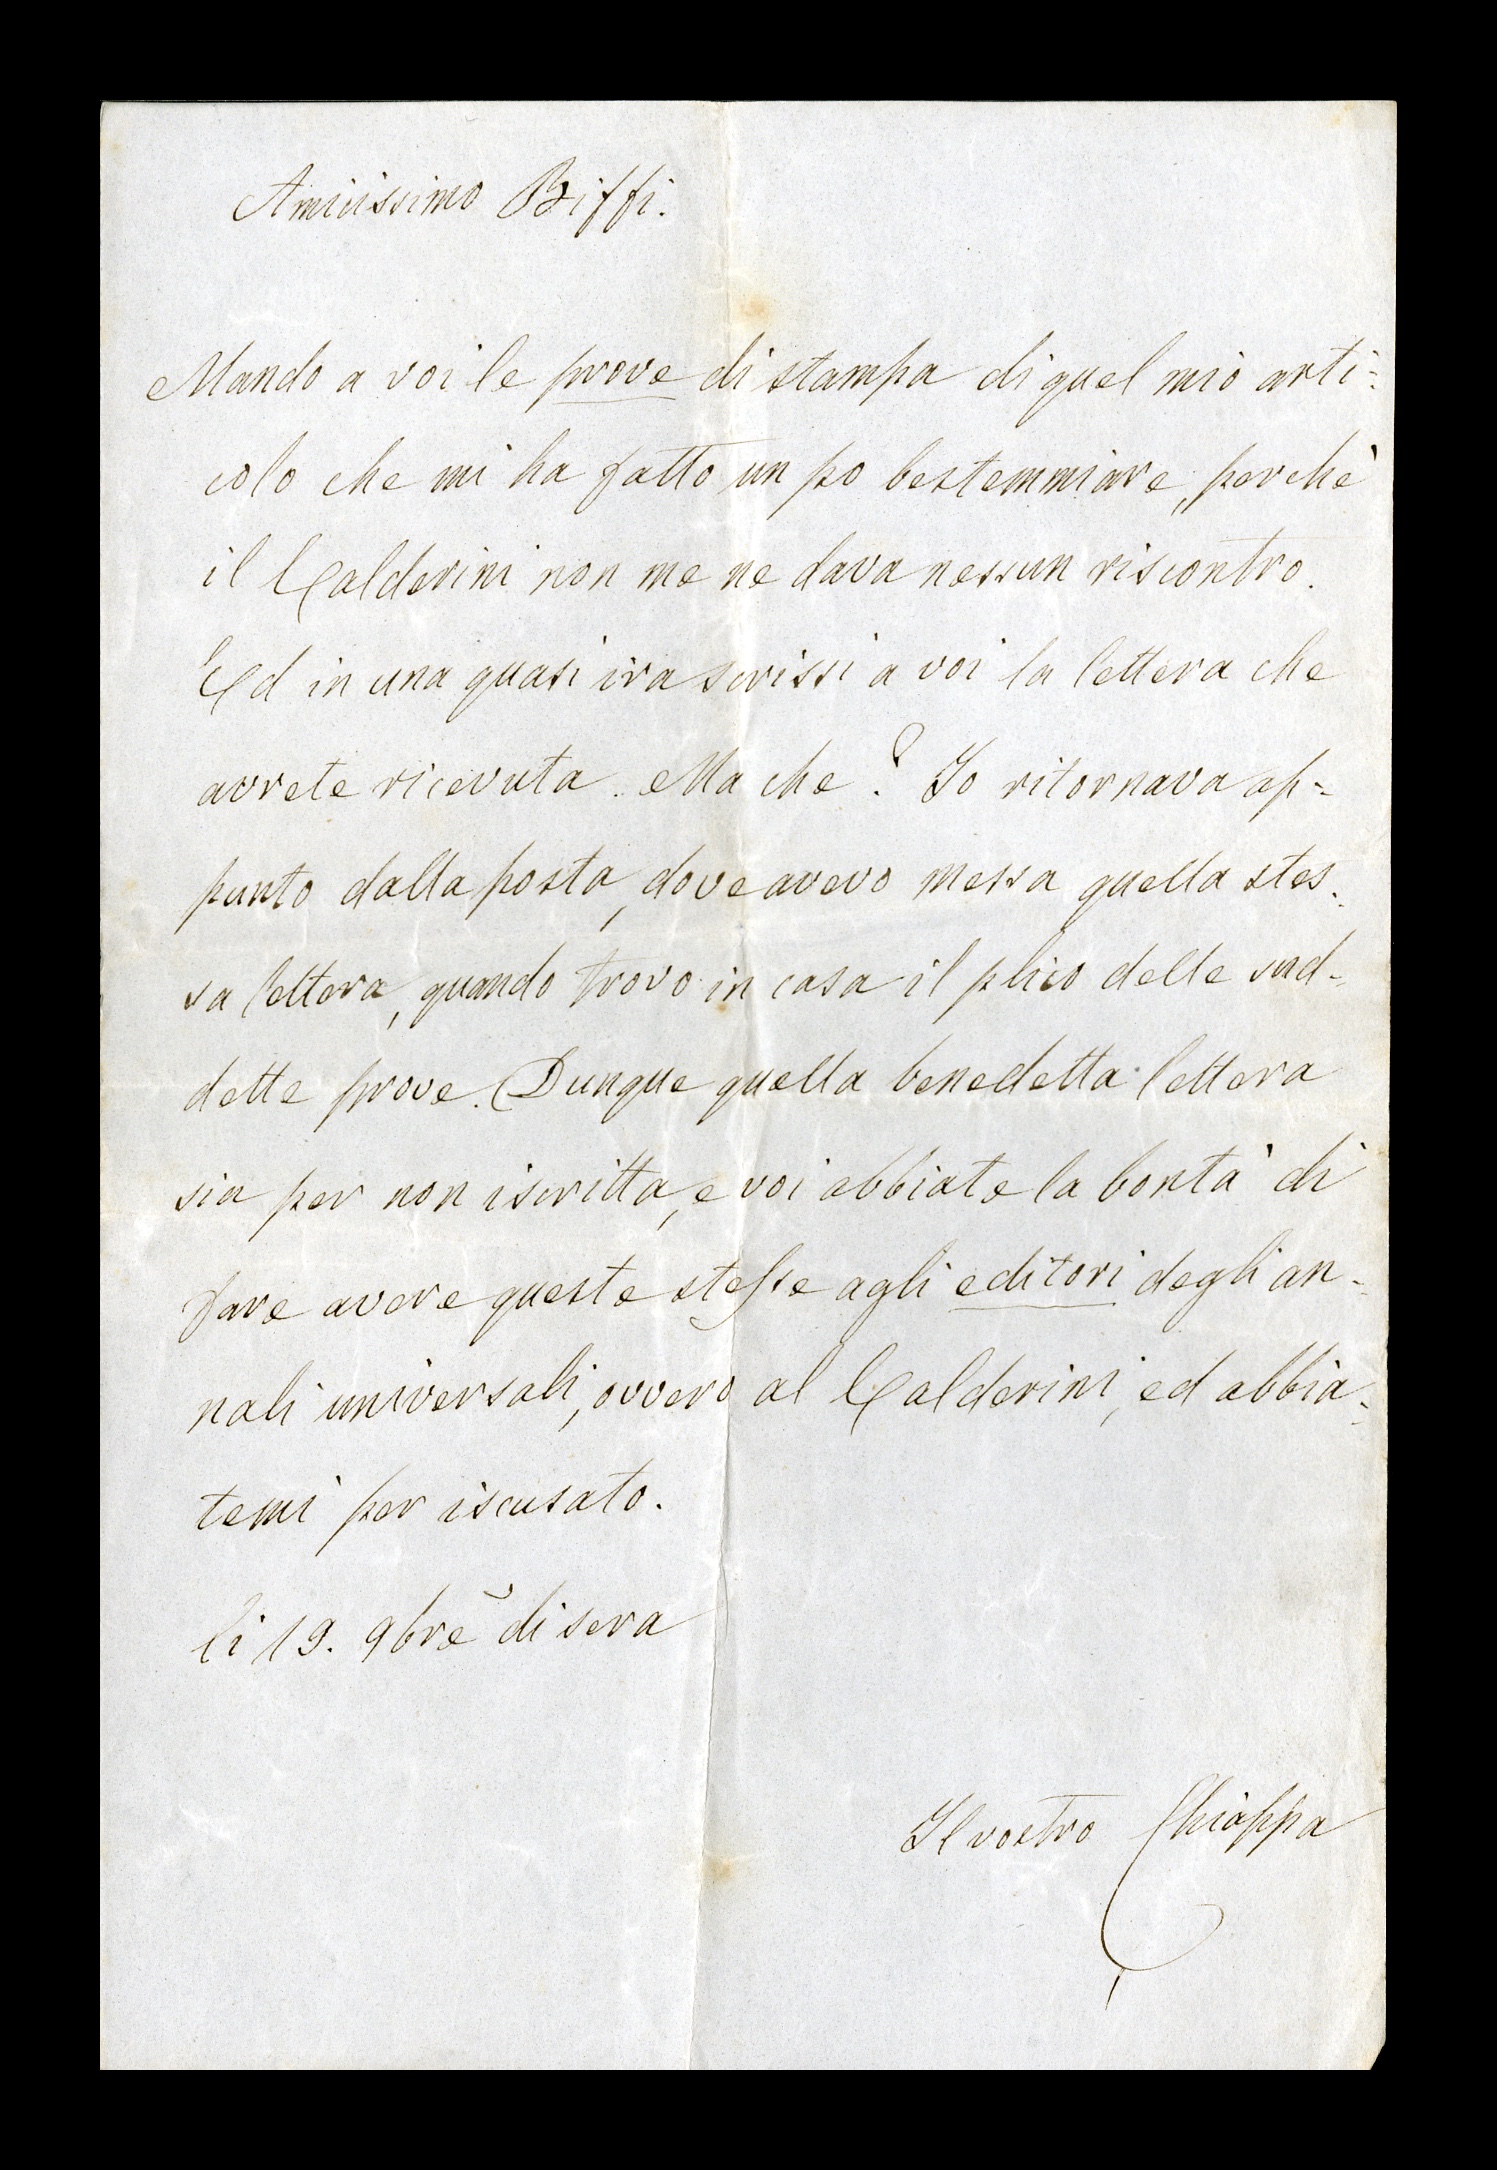 Amicissimo Biffi.
Mando a voi le prove di stampa di quel mio arti=
colo che mi ha fatto un po bestemmiare, perchè
il Calderini non me ne dava nessun riscontro.
Ed in una quasi ira scrissi a voi la lettera che
avrete ricevuta. Ma che? Io ritornava ap=
punto dalla posta, dove avevo messa quella stes=
sa lettera, quando trovo in casa il plico delle sud=
dette prove. Dunque quella benedetta lettera
sia per non iscritta, e voi abbiate la bontà di
fare avere queste stesse agli editori degli an=
nali universali, ovvero al Calderini, ed abbia=
temi per iscusato.
li 19. 9bre di sera
Il vostro Chiappa